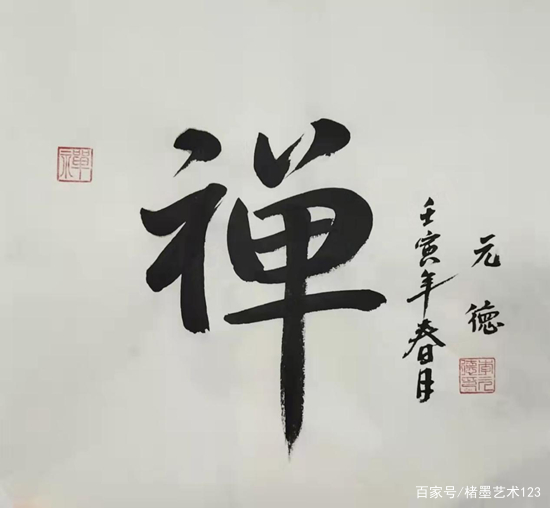 禅
元德
壬寅年春月
百家号/楮墨艺术123